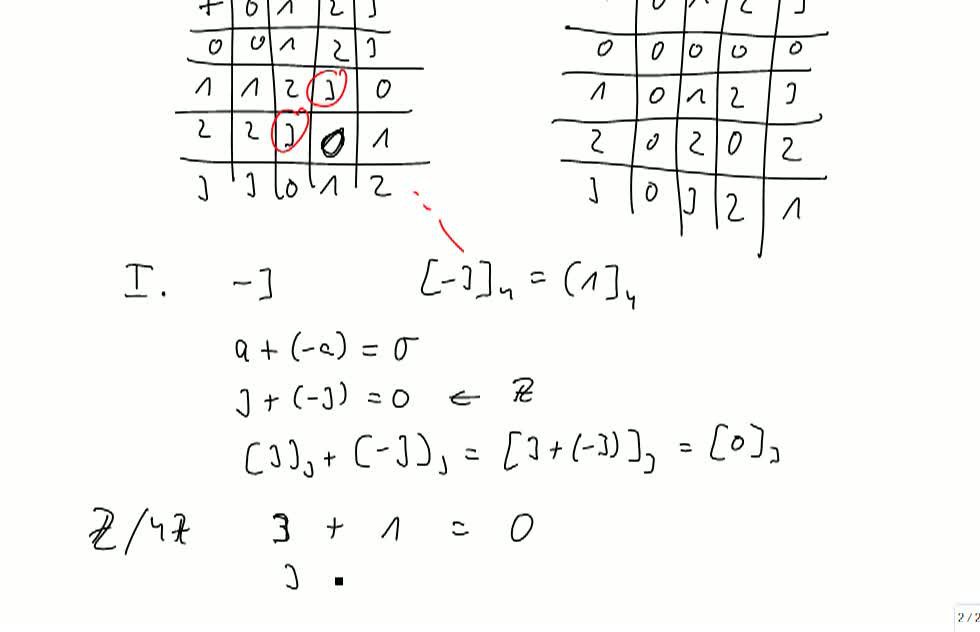 + 0 1 2 3
0 1 2 3
0 0 1 2 3
0 0 0 0 0
1 1 2 3 0
1 0 1 2 3
2 2 3 0 1
2 0 2 0 2
3 3 0 1 2
3 0 3 2 1
I. -3 [-3]₄ = [1]₄
a + (-a) = 0
3 + (-3) = 0 ← ℤ
[3]₃ + [-3]₃ = [3 + (-3)]₃ = [0]₃
ℤ/4ℤ 3 + 1 = 0
3 ·
2/2